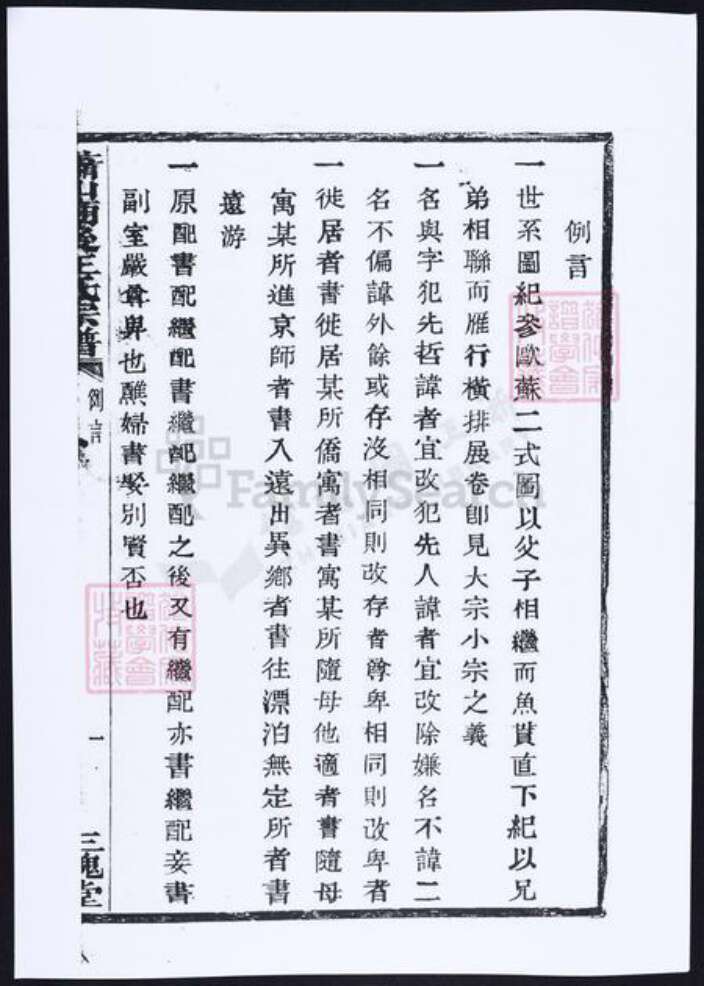 例言
一世系圖紀參歐蘇二式圖以父子相繼而魚貫直下紀以兄
弟相聯而雁行橫排展卷卽見大宗小宗之義
一名與字犯先哲諱者宜改犯先人諱者宜改除嫌名不諱二
名不偏諱外餘或存沒相同則改存者尊卑相同則改卑者
一徙居者書徙居某所僑寓者書寓某所隨母他適者書隨母
寓某所進京師者書入遠出異鄉者書往漂泊無定所者書
遠游
一原配書配繼配書繼配繼配之後又有繼配亦書繼配妾書
副室嚴尊卑也醮婦書娶別賢否也
王氏宗譜
例言
一
三槐堂
FamilySearch